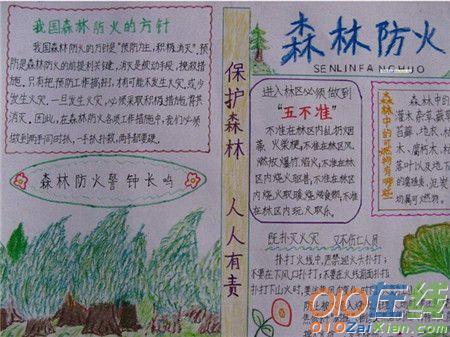 我国森林防火的方针
我国森林防火的方针是"预防为主,积极消灭",预
防是森林防火的前提和关键,消灭是被动手段,挽救措
施。只有把预防工作搞好了,才有可能不发生火灾或少
发生火灾,一旦发生火灾,必须采取积极措施,
消灭。因此,在森林防火各项工作措施中,我们必须
做到两手同时抓,一手抓
森林防火警钟长鸣
保护森林 人人有责
森林防火
SENLINFANGHUO
进入林区必须做到
"五不准"
不准在林区内乱扔烟
蒂、火柴梗,不准在林区
燃放爆竹、焰火,不准在林区
内烧火
内烧火取暖、烧烤食物,不准在
林区内玩火取乐。
森林中的可燃物有哪些
森林中的
灌木、杂草、
苔藓、地衣、
木、腐朽木、
落叶以及地下
切属可燃物。
既扑灭火灾 又不伤亡人员
扑打火线中,严禁迎火头扑打;
不要在下风口扑打;不要在火线前面扑打;
扑打下山火时,要
010在线
010ZaiXian.com